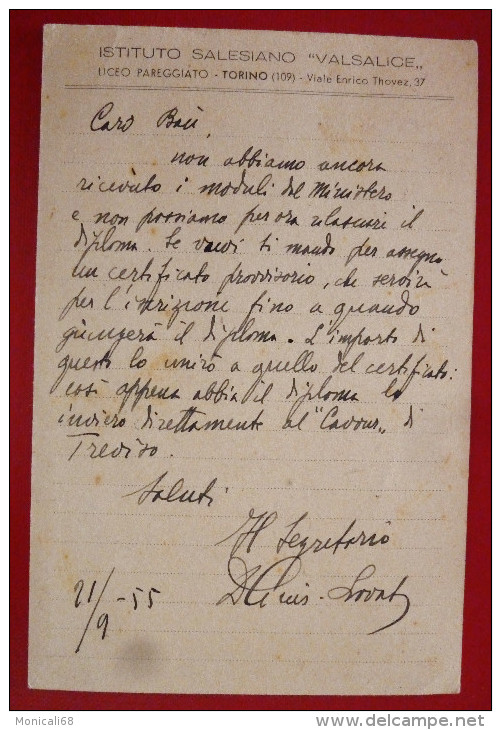 ISTITUTO SALESIANO "VALSALICE„
LICEO PAREGGIATO - TORINO (109) - Viale Enrico Thovez, 37
Caro
non abbiamo ancora
ricevuto i moduli dal Ministero
e non possiamo per ora rilasciare il
diploma. Se vuoi ti mando per assegno
un certificato provvisorio, che servirà
per l'iscrizione fino a quando
giungerà il diploma. L'importo di
questo lo unirò a quello del certificato:
così appena abbia il diploma lo
invierò direttamente al "Cavour„ di
Treviso.
Saluti
Il Segretario
21/9-55
Monicali68
www.delcampe.net